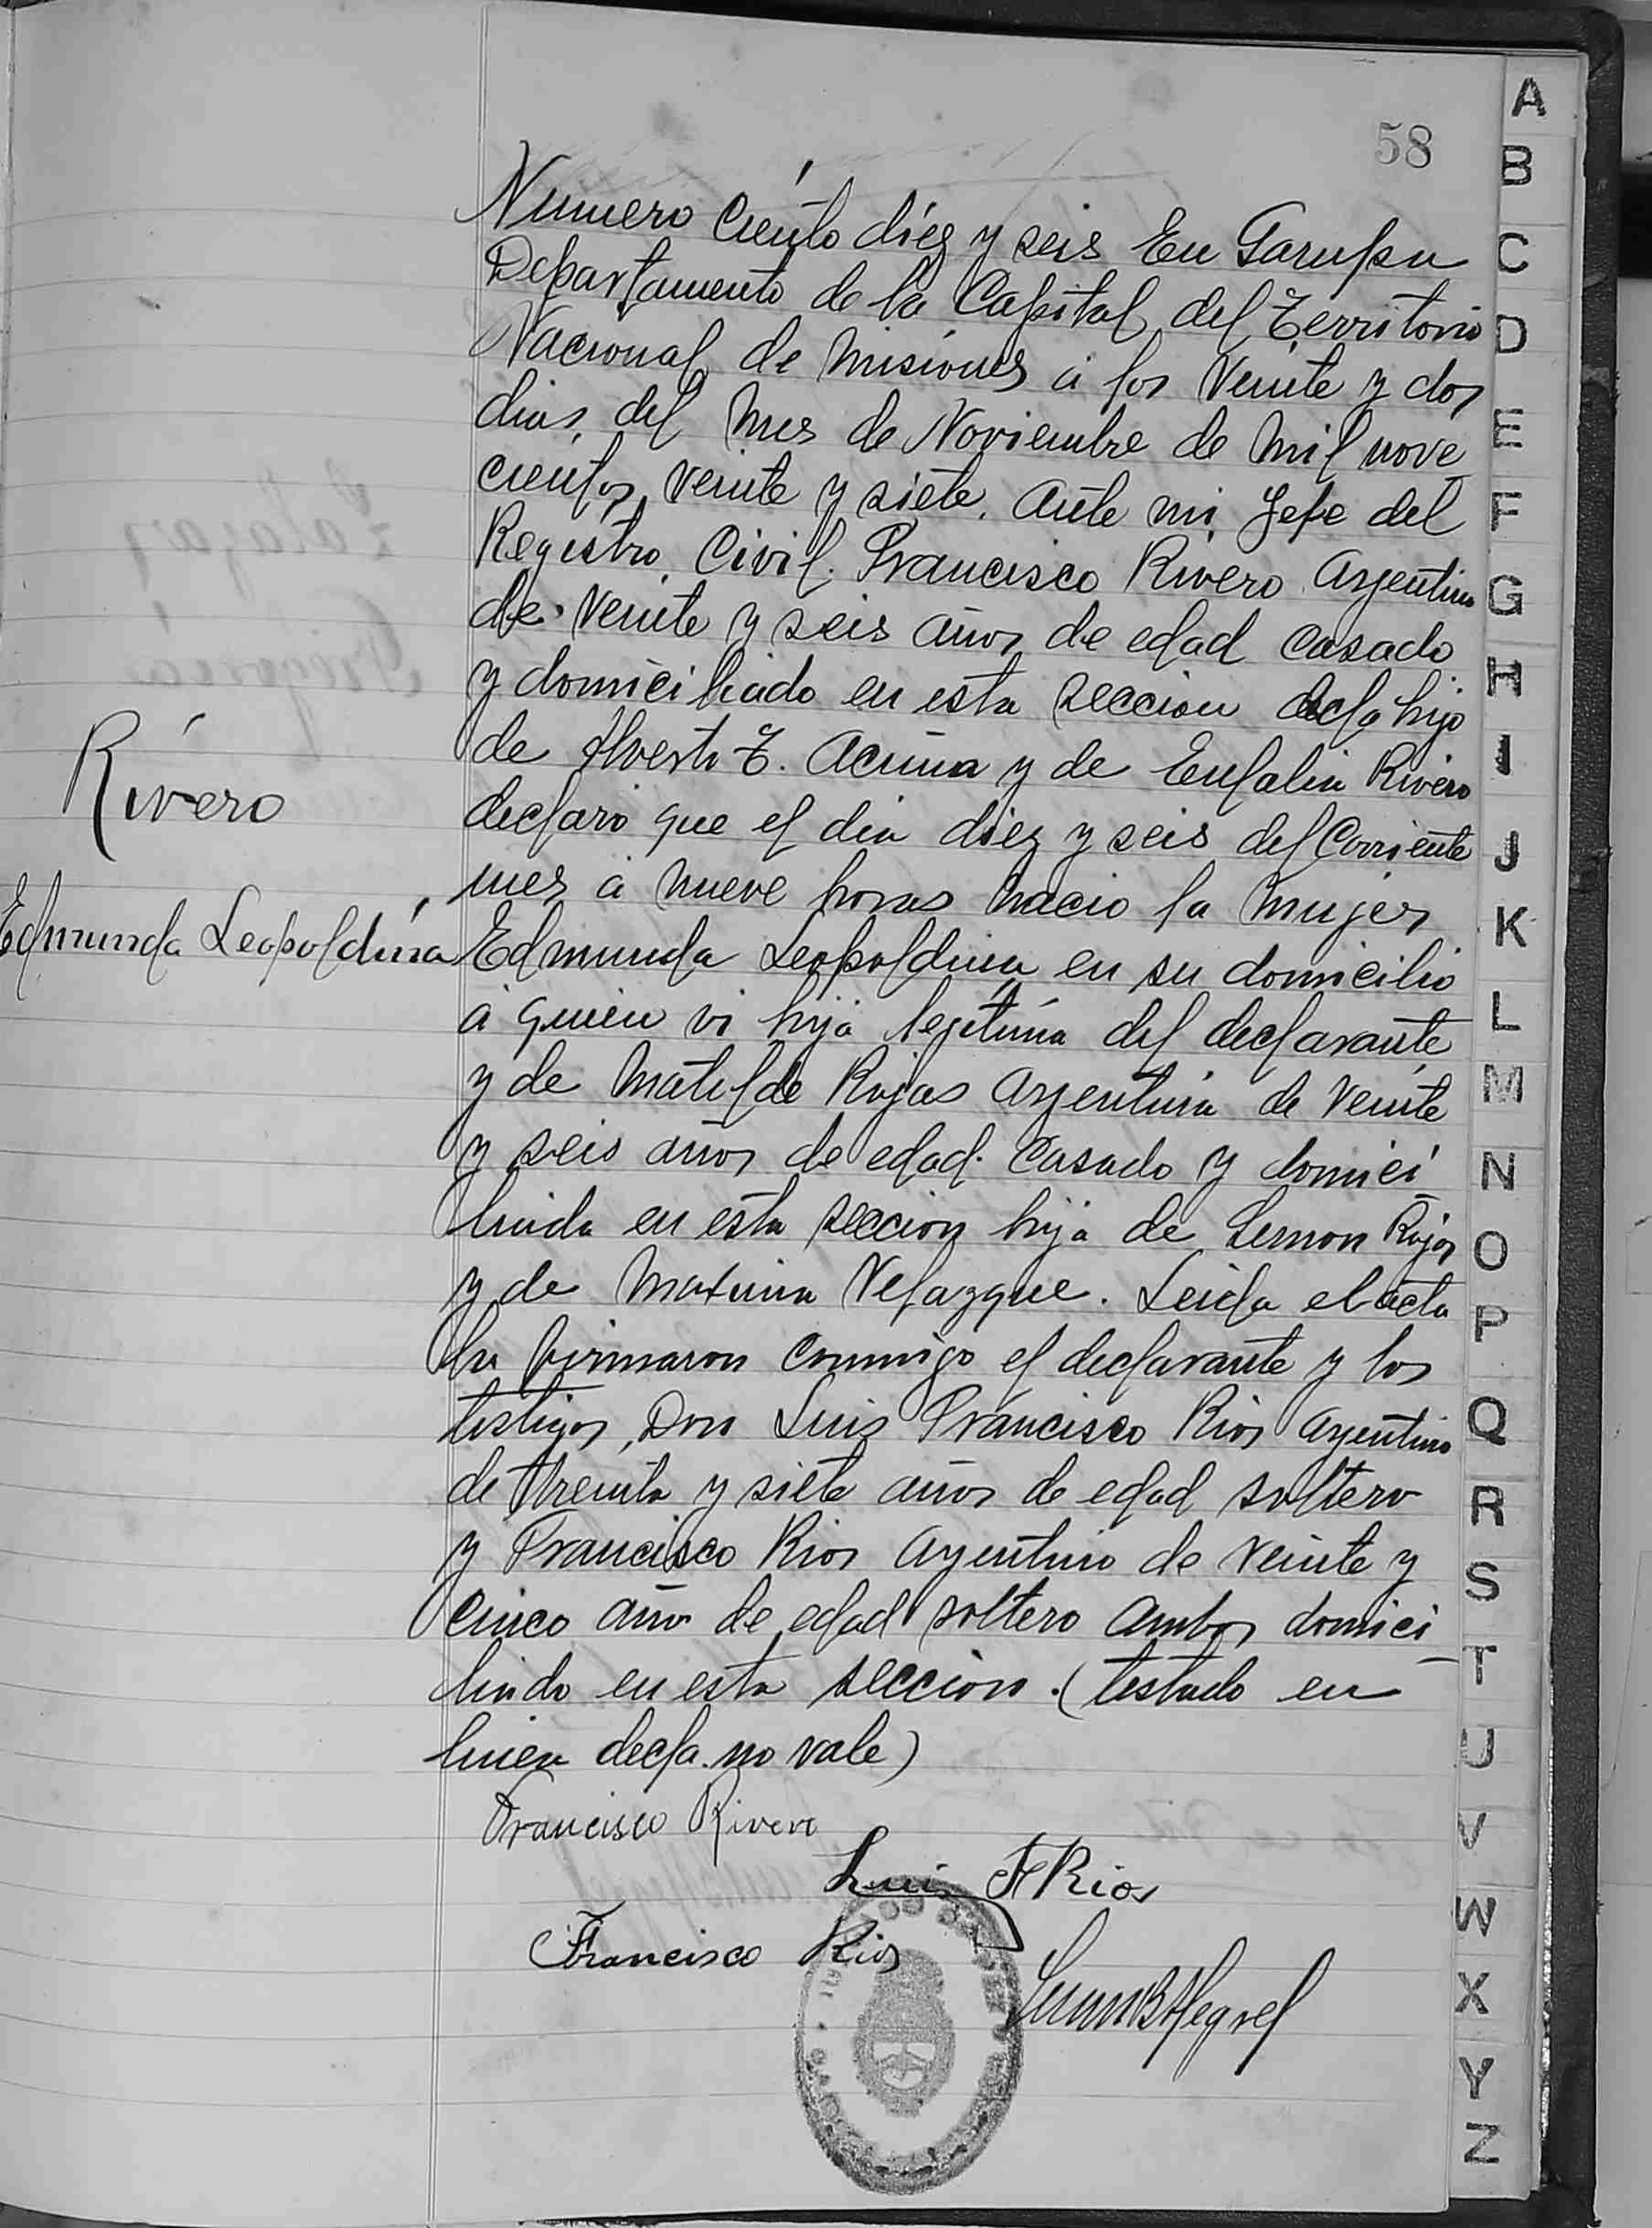 58
Numero Ciento diez y seis En Garupa
Departamento de la Capital del Territorio
Nacional de Misiones á los Veinte y dos
dias, del Mes de Noviembre de Mil nove
cientos, veinte y siete. Ante mi, Jefe del
Registro, Civil. Francisco Rivero Argentino
de Veinte y seis años de edad casado
y domiciliado en esta seccion decla hijo
de Alverto T. Acuña y de Eufalia Rivero
declaró que el dia diez y seis del Corriente
mes á nueve horas nacio la Mujer
Rivero
Edmunda Leopoldina
Edmunda Leopoldina en su domicilio
á quien vi hija legitima del declarante
y de Matilde Rojas Argentina de Veinte
y seis años de edad. Casado y domici
liada en esta seccion hija de Rojas
y de Maxima Velazque. Leida el acta
la firmaron conmigo el declarante y los
testigos, Don Luis Francisco Rios Argentino
de treinta y siete años de edad soltero
y Francisco Rios Argentino de veinte y
cinco año de edad soltero ambos domici
liado en esta seccion. (testado en
linea decla. no vale)
Francisco Rivero
Luis F Rios
Francisco Rios
A
B
C
D
E
F
G
H
I
J
K
L
M
N
O
P
Q
R
S
T
U
V
W
X
Y
Z